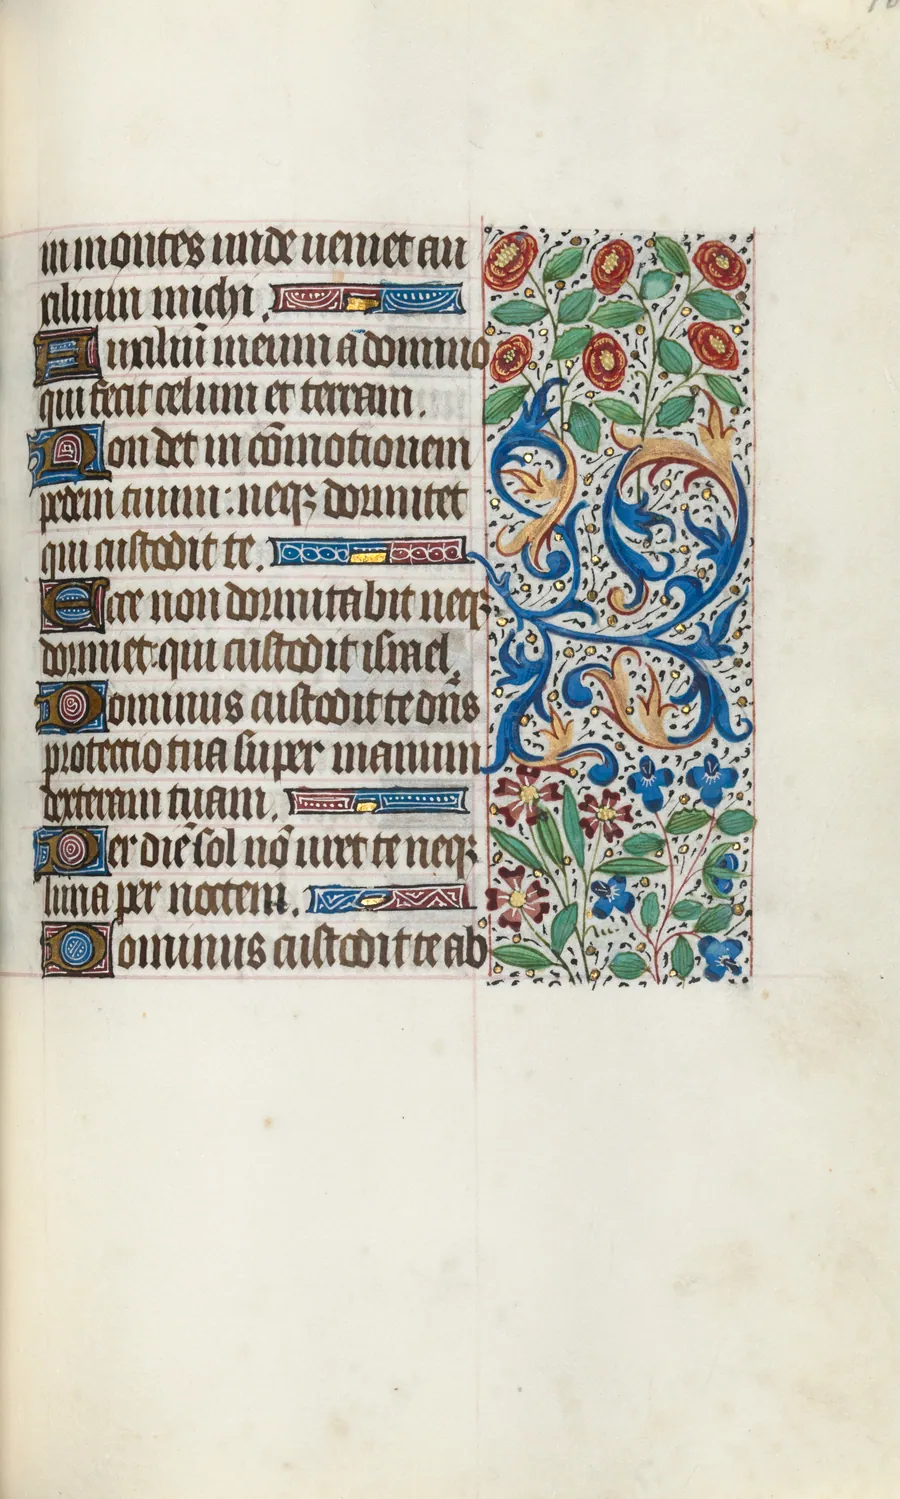 in montes unde veniet au
xilium michi.
Auxiliū meum a domino
qui fecit celum et terram.
Non det in cōmotionem
pedem tuum: neqꝫ dormitet
qui custodit te.
Ecce non dormitabit neqꝫ
dormiet: qui custodit israel.
Dominus custodit te dn̄s
protectio tua super manum
dexteram tuam.
Per diē sol nō uret te neqꝫ
luna per noctem.
Dominus custodit te ab